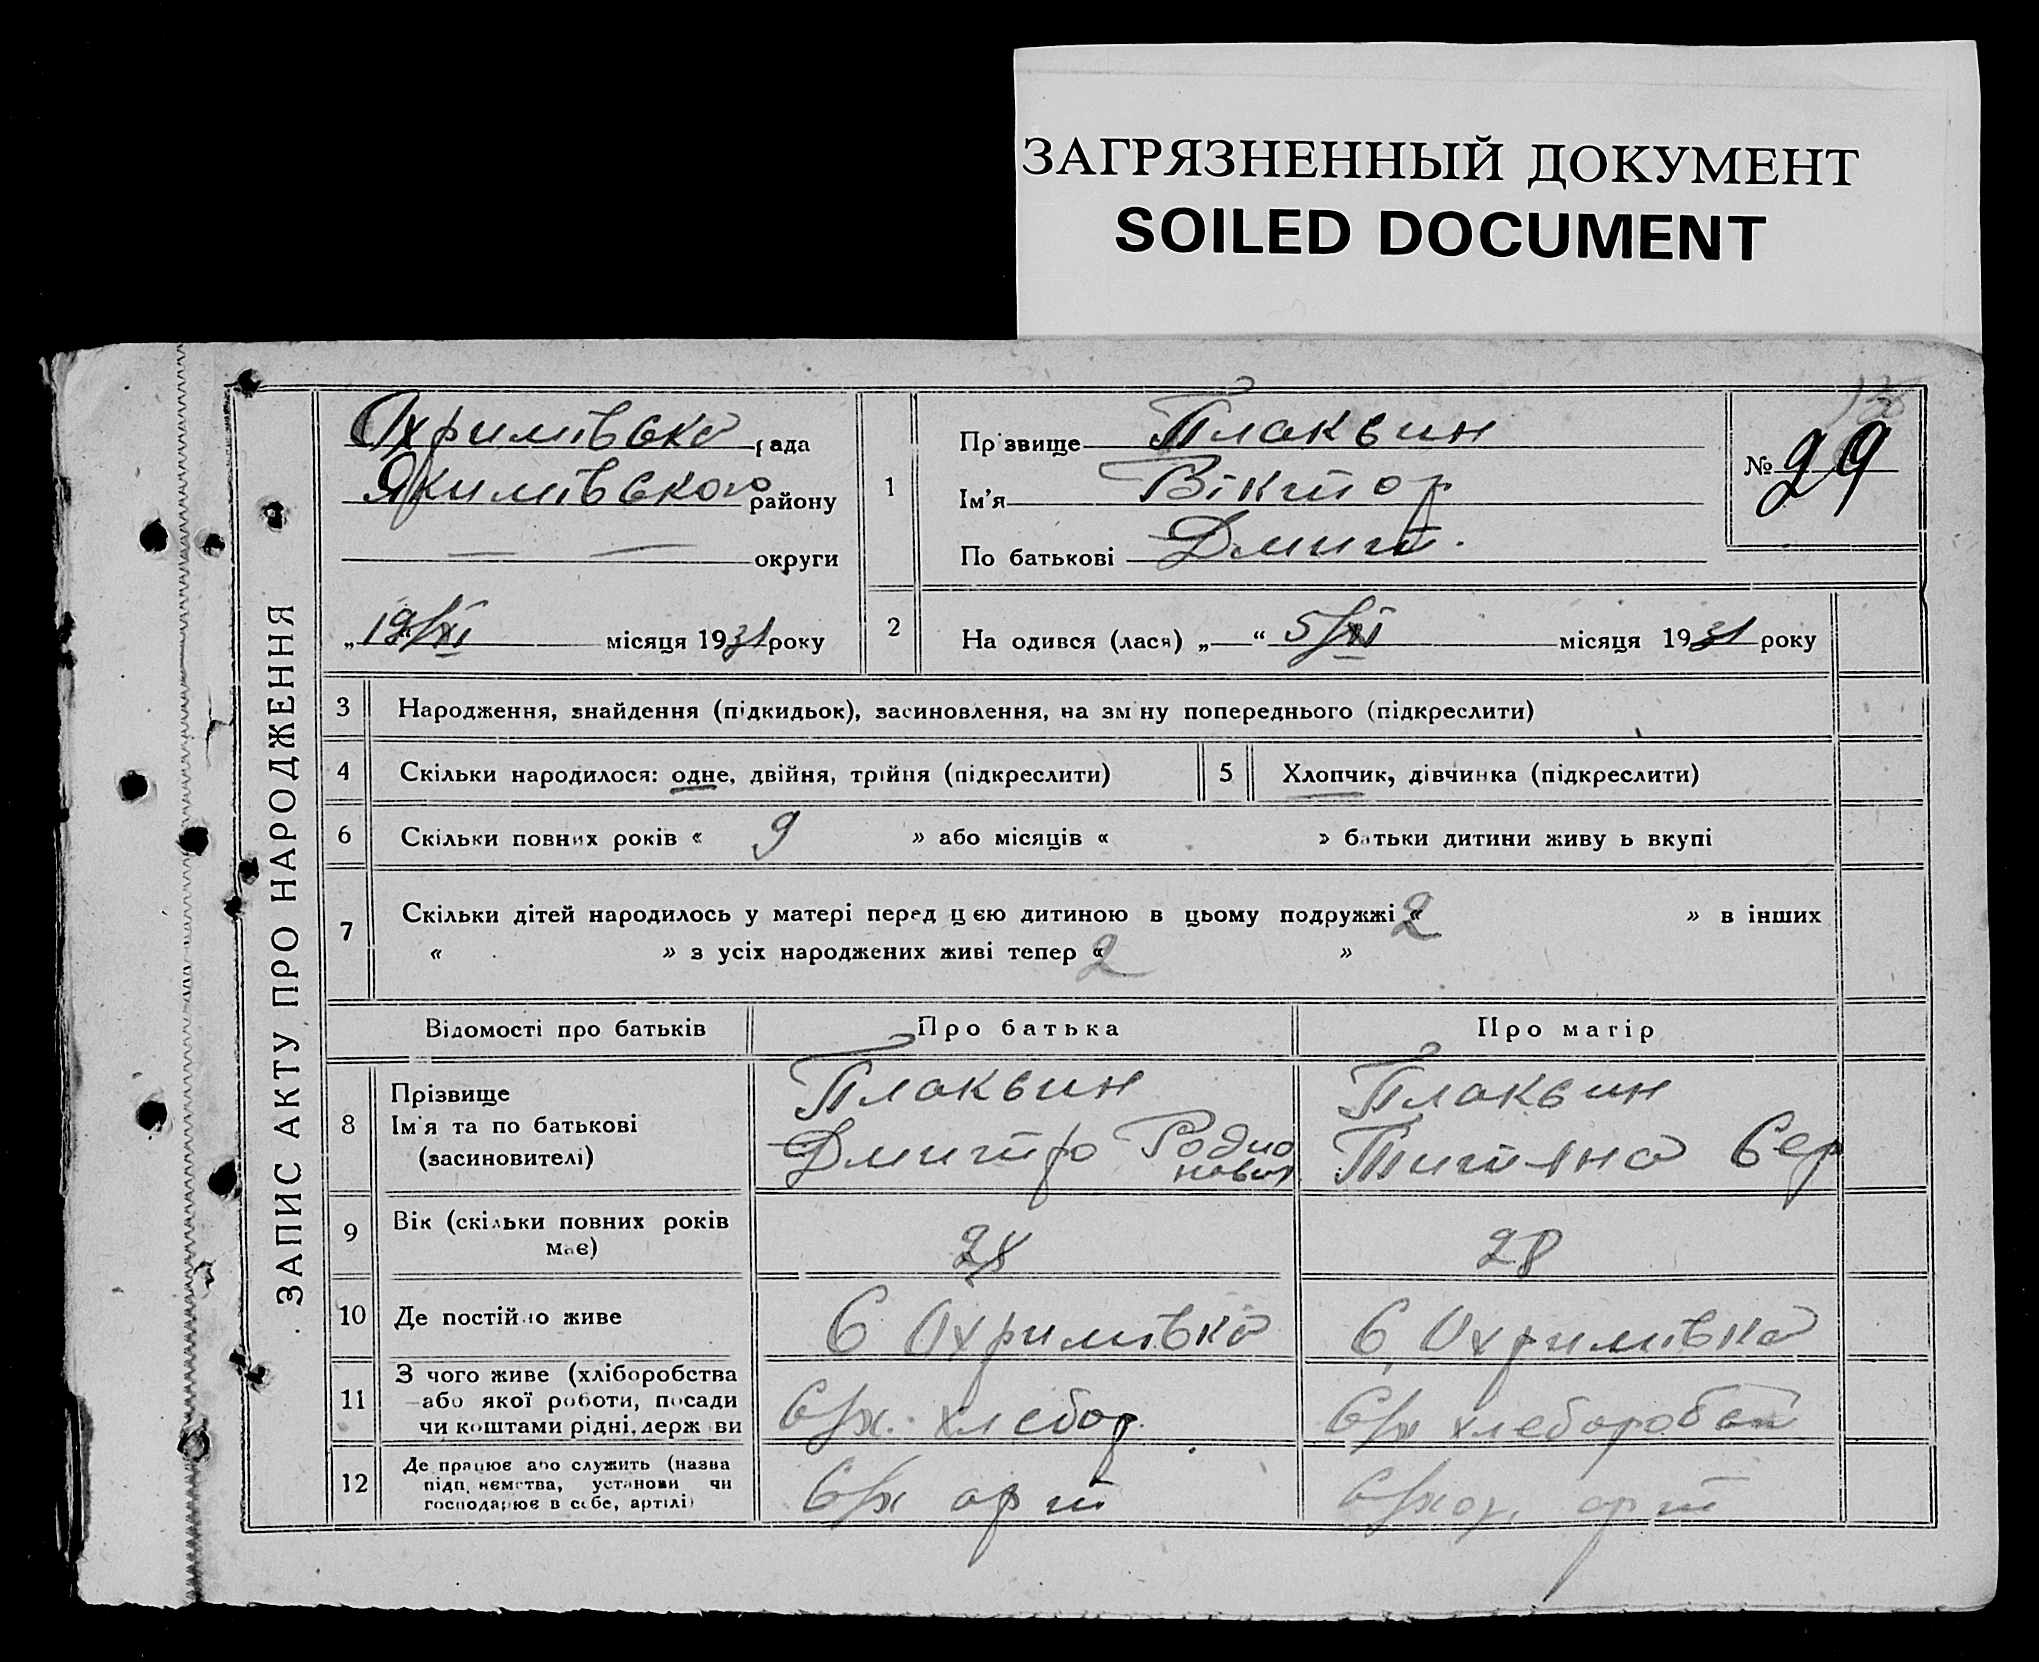 ЗАГРЯЗНЕННЫЙ ДОКУМЕНТ
SOILED DOCUMENT
ЗАПИС АКТУ ПРО НАРОДЖЕННЯ
Охримівска рада
Якимівського району
— — округи
„19/XI місяця 1931 року
1
Прізвище Плаквин
Ім'я Віктор
По батькові Дмит.
№ 29
2 На одився (лася) „—“ 5/XI місяця 1931 року
3 Народження, знайдення (підкидьок), засиновлення, на зм ну попереднього (підкреслити)
4 Скільки народилося: одне, двійня, трійня (підкреслити)
5 Хлопчик, дівчинка (підкреслити)
6 Скільки повних років « 9 » або місяців « » батьки дитини живу ь вкупі
7 Скільки дітей народилось у матері перед цєю дитиною в цьому подружжі « 2 » в інших
« » з усіх народжених живі тепер « 2 »
Відомості про батьків Про батька Про матір
8 Прізвище
Ім'я та по батькові
(засиновителі)
Плаквин
Дмитро Родио
нович
Плаквин
Титяна Сер
9 Вік (скільки повних років
має)
28
28
10 Де постійно живе
С Охримівка
С. Охримівка
11 З чого живе (хліборобства
або якої роботи, посади
чи коштами рідні, держ ви
С/х. хлебор.
С/х хлеборобст
12 Де працює або служить (назва
підп. ємства, установи чи
господарює в себе, артілі)
С/х арт
С/хоз. арт